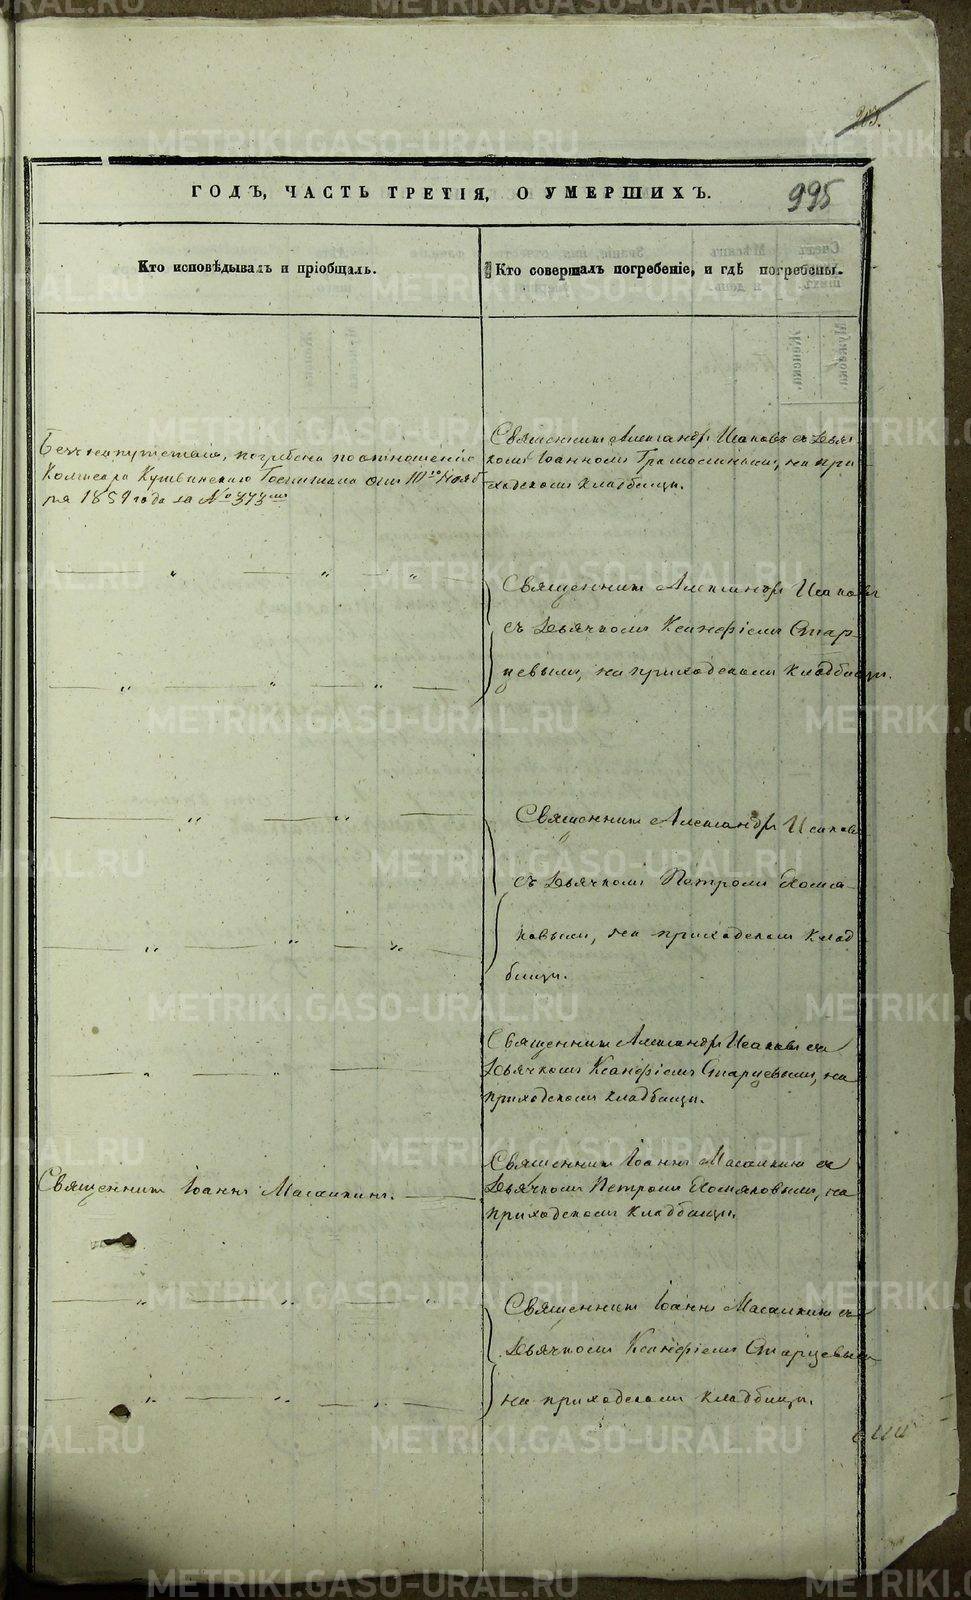 203.
ГОДЪ, ЧАСТЬ ТРЕТІЯ, О УМЕРШИХЪ.
995
Кто исповѣдывалъ и пріобщалъ.
Кто совершалъ погребеніе, и гдѣ погребены.
Безъ напутствія, погребены по отношенію
Комисара Кушвинскаго Госпиталя отъ 10го Нояб
ря 1859 года за № 373мъ
Священникъ Александръ Исаковъ съ Дьяч
комъ Іоанномъ на при
ходскомъ кладбищѣ.
Священникъ Александръ Исаковъ
съ Дьячкомъ Ксанфіемъ Стар
цевымъ, на приходскомъ кладбищѣ.
Священникъ Александръ Исаковъ
съ Дьячкомъ Петромъ Хомя
ковымъ, на приходскомъ клад
бищѣ.
Священникъ Александръ Исаковъ съ
Дьячкомъ Ксанфіемъ Старцевымъ, на
приходскомъ кладбищѣ.
Священникъ Іоаннъ Масалкинъ.
Священникъ Іоаннъ Масалкинъ съ
Дьячкомъ Петромъ Хомяковымъ, на
приходскомъ кладбищѣ.
Священникъ Іоаннъ Масалкинъ съ
Дьячкомъ Ксанфіемъ Старцевымъ
на приходскомъ кладбищѣ.
METRIKI.GASO-URAL.RU